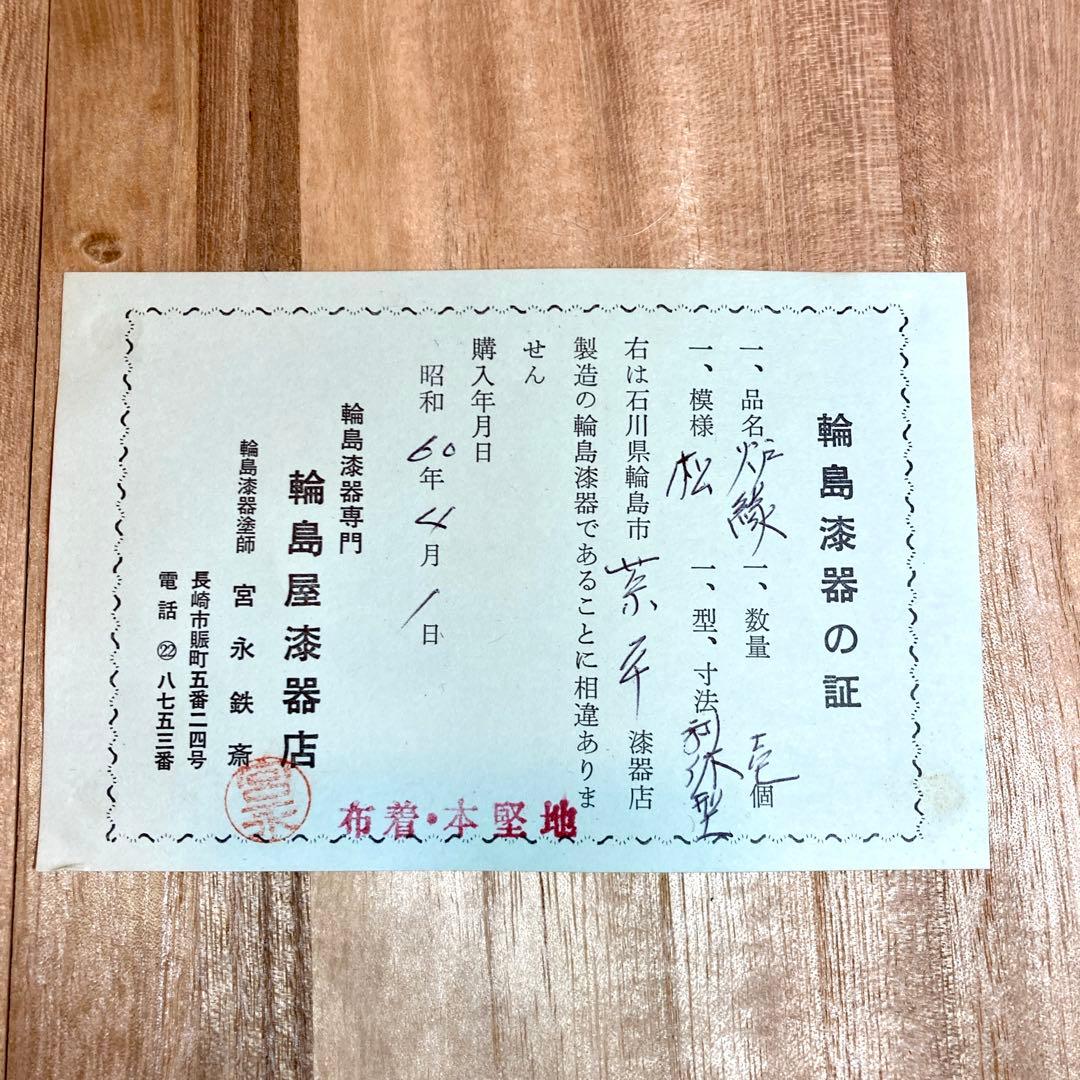 輪島漆器の証
一、品名 炉縁 一、数量 壱個
一、模様 松 一、型、寸法 利休型
右は石川県輪島市 平 漆器店
製造の輪島漆器であることに相違ありま
せん
購入年月日
昭和60年4月1日
輪島漆器専門
輪島屋漆器店
輪島漆器塗師 宮永鉄斎
長崎市賑町五番二四号
電話㉒八七五三番
宮永
布着・本堅地